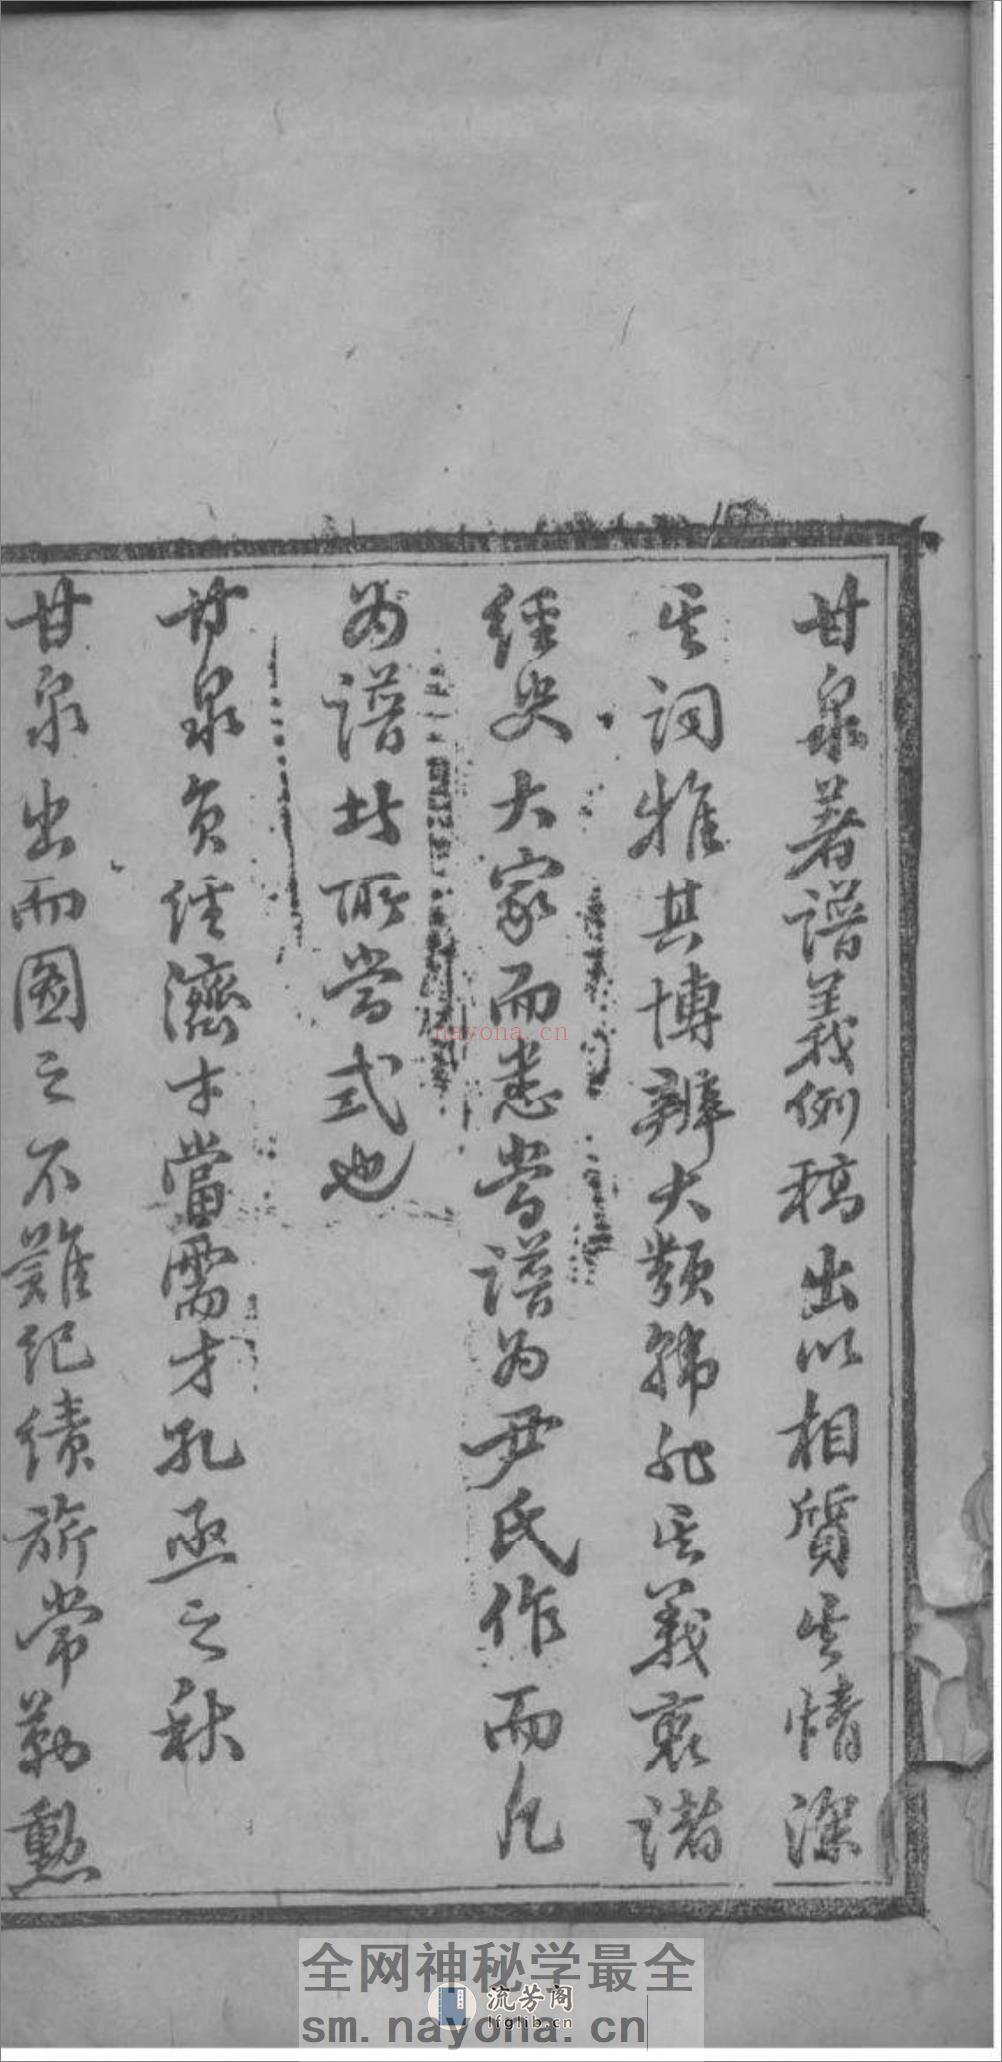 甘泉著譜義例稿出以相質其情深
其詞雅其博辨大類韓非其義衷諸
經史大家而悉當譜為尹氏作而凡
為譜者所當式也
甘泉負經濟才當需才孔亟之秋
甘泉出而圖之不難紀績旂常勒勳
nayona.cn
全网神秘学最全
流芳阁
lfglib.cn
sm.nayona.cn